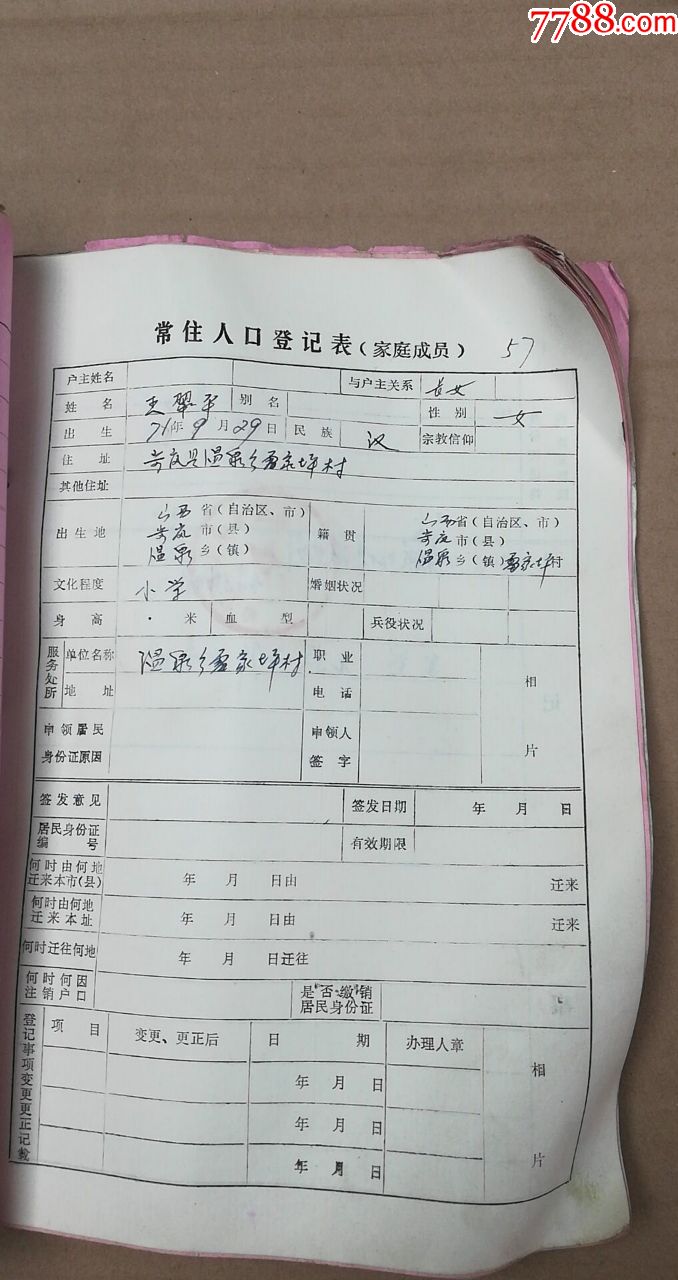 7788.com
常住人口登记表（家庭成员） 57
户主姓名 与户主关系 长女
姓名 王翠平 别名 性别 女
出生 71年9月29日 民族 汉 宗教信仰
住址 岢岚县温泉乡贾家坪村
其他住址
出生地 山西省（自治区、市） 岢岚市（县） 温泉乡（镇） 籍贯 山西省（自治区、市） 岢岚市（县） 温泉乡（镇）贾家坪村
文化程度 小学 婚姻状况
身高 · 米 血型 兵役状况
服务处所 单位名称 温泉乡贾家坪村 职业 相
地址 电话
申领居民 申领人 片
身份证原因 签字
签发意见 签发日期 年 月 日
居民身份证编号 有效期限
何时由何地迁来本市（县） 年 月 日由 迁来
何时由何地迁来本址 年 月 日由 迁来
何时迁往何地 年 月 日迁往
何时何因注销户口 是否缴销居民身份证
登记事项变更更正记载 项目 变更、更正后 日期 办理人章 相
年 月 日
年 月 日
年 月 日 片